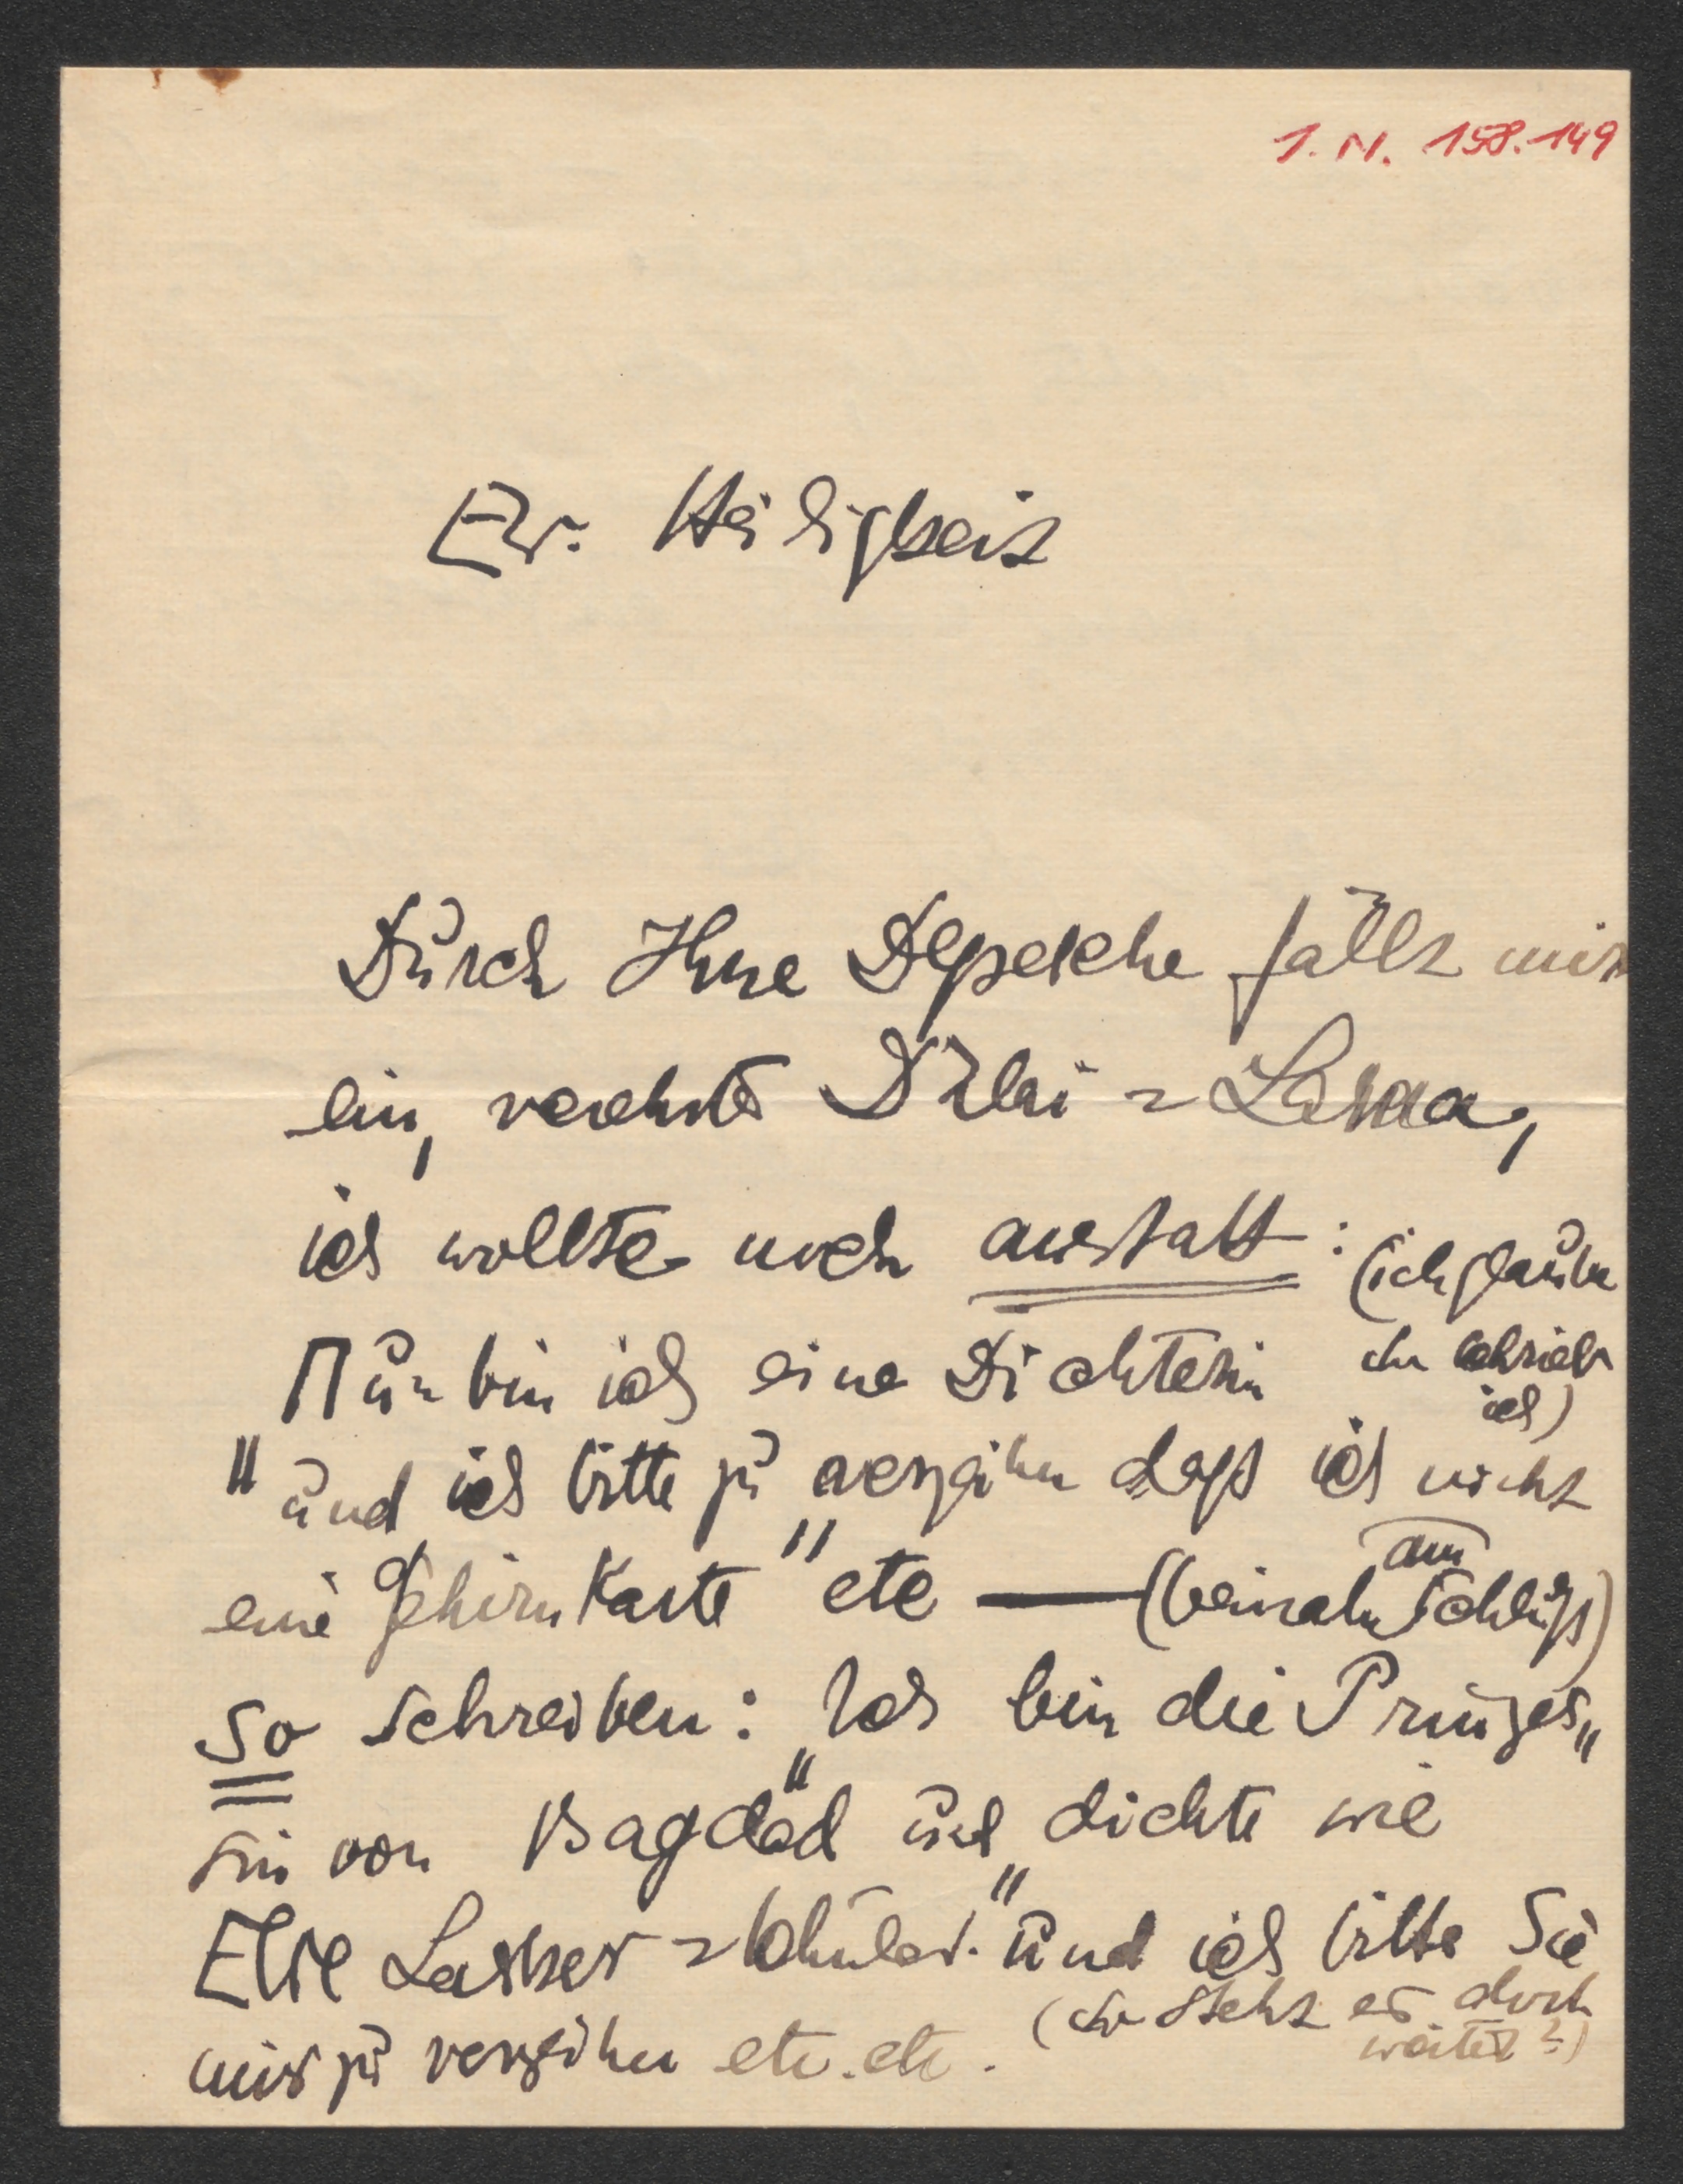 I. N. 158.149
Ew. Heiligkeit
Durch Ihre Depesche fällt mir
ein, verehrter Dalai-Lama,
ich wollte noch anstatt: (ich glaube
Nur bin ich eine Dichterin da schrieb
ich)
"und ich bitte zu verzeihen daß ich nicht
eine Gehirnkarte" etc — (beinah am Schluß)
so schreiben: "Ich bin die Prinzes"
sin von Bagdad und dichte wie
Else Lasker-Schüler." und ich bitte Sie
mir zu verzeihen etc. etc. (da steht es doch
weiter?)